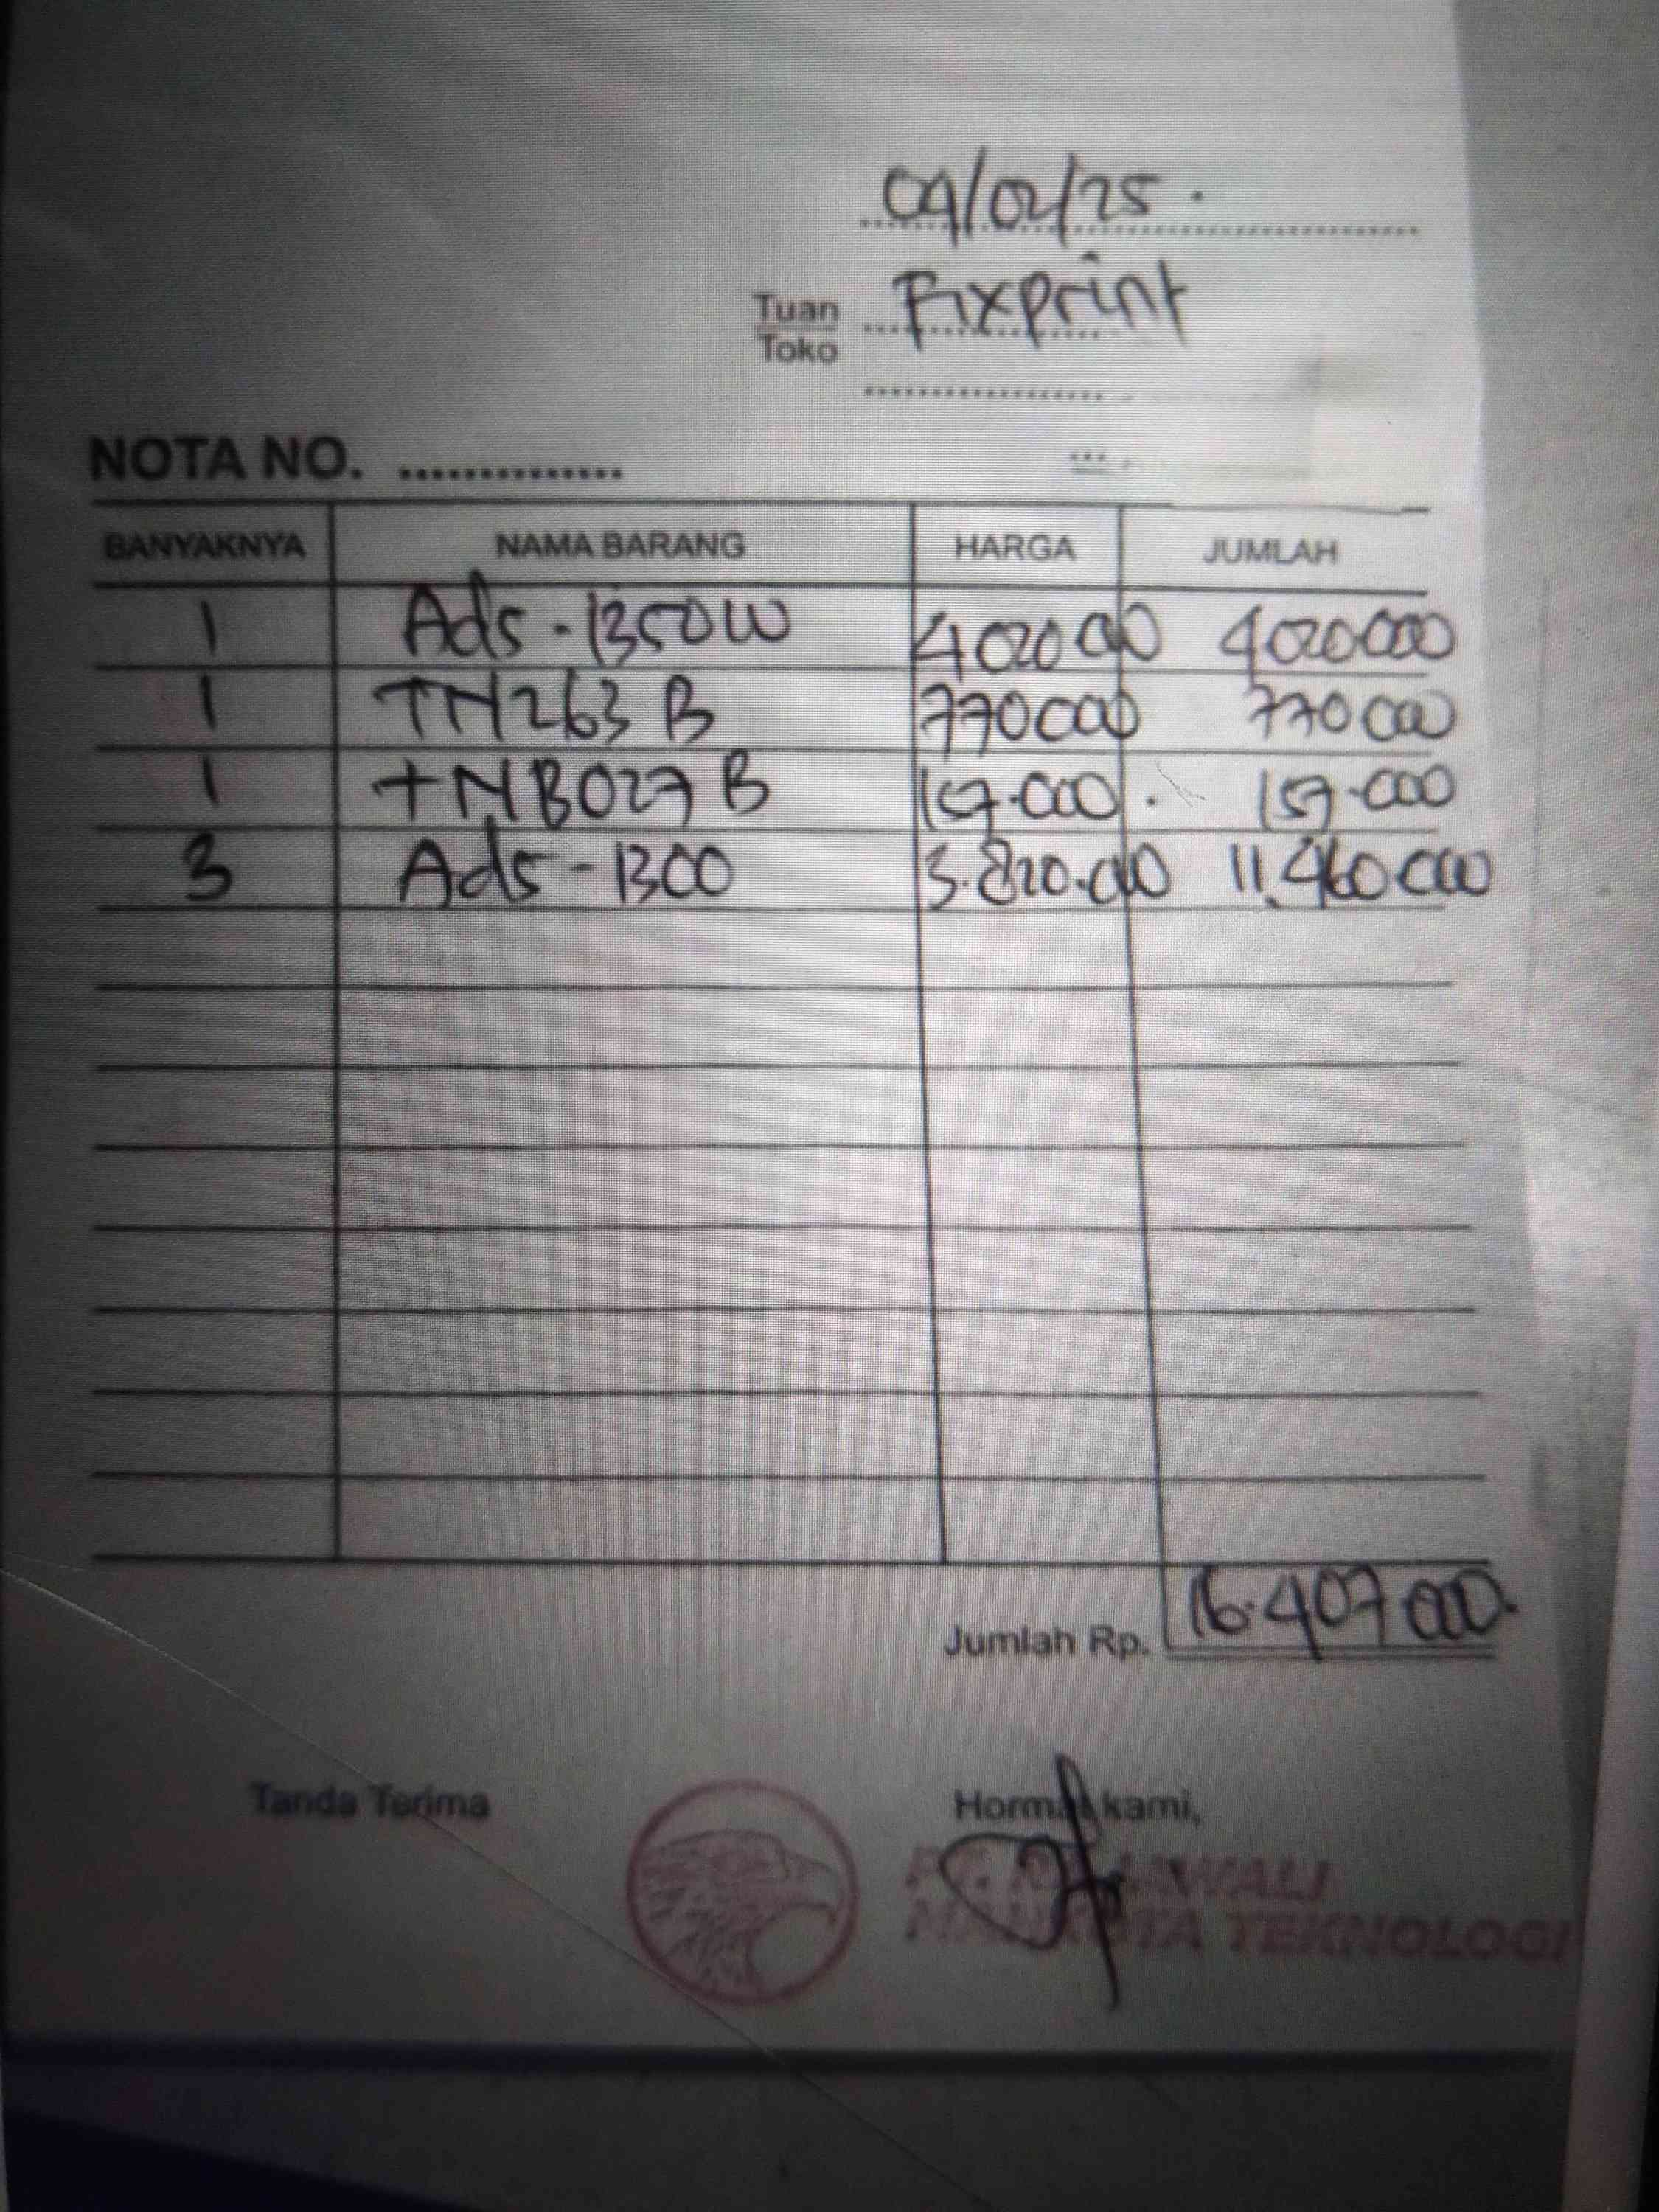 09/02/25.
Tuan Fixprint
Toko
NOTA NO.
BANYAKNYA NAMA BARANG HARGA JUMLAH
1 Ads-1350W 4020000 4020000
1 TN263 B 770000 770000
1 TNB027 B 157.000 157.000
3 Ads-1300 3.820.000 11.460000
Jumlah Rp. 16.407000.
Tanda Terima Hormat kami,
PT.
TEKNOLOGI